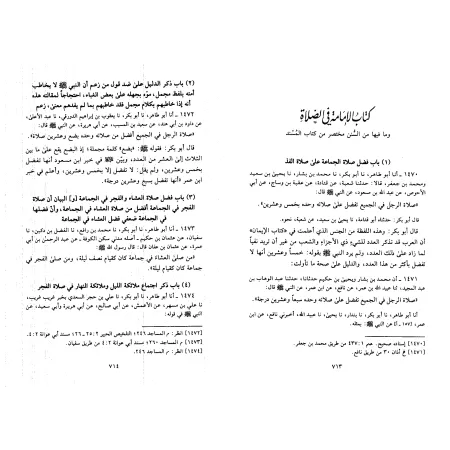 كتاب الإمامة في الصلاة
وما فيها من السنن مختصر من كتاب المسند
(١) باب فضل صلاة الجماعة على صلاة الفذ
١٤٧٠ - أنا أبو طاهر، نا أبو بكر، نا محمد بن بشار، نا يحيى بن سعيد
ومحمد بن جعفر، قالا: حدثنا شعبة، عن قتادة، عن عقبة بن وساج، عن أبي
الأحوص، عن عبد الله بن مسعود، عن النبي ﷺ قال:
«صلاة الرجل في الجميع تفضل على صلاته وحده خمسا وعشرين».
قال أبو بكر: حدثنا
قال أبو بكر: وهذه اللفظة من الجنس الذي أعلمت في «كتاب الإيمان»
أن العرب قد تذكر العدد للشيء ذي الأجزاء والشعب من غير أن تريد نفيًا
لما زاد على ذلك العدد، ولم يرد النبي ﷺ بقوله: خمسا وعشرين أنها لا
تفضل بأكثر من هذا العدد، والدليل على صحة ما تأولت:
١٤٧١ - أن محمد بن بشار ويحيى بن حكيم حدثانا، حدثنا عبد الوهاب بن
عبد المجيد، نا عبيد الله، عن نافع، عن ابن عمر، عن النبي ﷺ قال:
«صلاة الرجل في الجميع تفضل على صلاته وحده سبعا وعشرين درجة».
أنا أبو طاهر، نا أبو بكر، نا بندار، نا يحيى، نا عبيد الله، أخبرني نافع، عن ابن
عمر، عن النبي ﷺ بمثله.
[١٤٧٠] إسناده صحيح. حم ١: ٤٣٧ من طريق محمد بن جعفر.
[١٤٧١] من طريق نافع.
٧١٣
(٢) باب ذكر الدليل على ضد قول من زعم أن النبي ﷺ لا يخاطب
أمته بلفظ مجمل، موّه بجهله على بعض الغباء، احتجاجاً لمقالته هذه
أنه إذا خاطبهم بكلام مجمل فقد خاطبهم بما لم يفدهم معنى، زعم
١٤٧٢ - أنا أبو طاهر، نا أبو بكر، نا يعقوب بن إبراهيم الدورقي، نا
عن داود بن أبي هند، عن سعيد بن المسيب، عن أبي هريرة، عن النبي ﷺ قال:
«صلاة الرجل في الجميع أفضل من صلاته وحده بضع وعشرين صلاة».
قال أبو بكر: فقوله ﷺ: «بضع» كلمة مجملة؛ إذ البضع يقع على ما بين
الثلاث إلى العشر من العدد، وبيّن ﷺ في خبر ابن مسعود أنها تفضل
بخمس وعشرين، ولم يقل: لا تفضل إلا بخمس وعشرين، وأعلم في خبر
ابن عمر «أنها تفضل بسبع وعشرين درجة».
(٣) باب فضل صلاة العشاء والفجر في الجماعة (و) البيان أن صلاة
الفجر في الجماعة أفضل من صلاة العشاء في الجماعة، وأنّ فضلها
في الجماعة ضعفي فضل العشاء في الجماعة
١٤٧٣ - أنا أبو طاهر، نا أبو بكر، نا محمد بن رافع، نا الفضل بن دكين، نا
سفيان، عن عثمان بن حكيم - أصله مدني سكن الكوفة - عن عبد الرحمن بن أبي
عمرة، عن عثمان بن عفان قال: قال رسول الله ﷺ:
«من صلى العشاء في جماعة كان كقيام نصف ليلة، ومن صلى الفجر في
جماعة كان كقيام ليلة».
(٤) باب ذكر اجتماع ملائكة الليل وملائكة النهار في صلاة الفجر
١٤٧٤ - أنا أبو طاهر، نا أبو بكر، نا علي بن حجر السعدي بخبر غريب غريب،
نا علي بن مسهر، عن الأعمش، عن أبي صالح، عن أبي هريرة وأبي سعيد، عن
النبي ﷺ في قوله:
[١٤٧٢] انظر: م المساجد ٢٤٦؛
[١٤٧٣] م المساجد ٢٦٠؛ مسند أبي عوانة ٢: ٤ من طريق سفيان.
[١٤٧٤] انظر: م المساجد ٢٤٦.
٧١٤